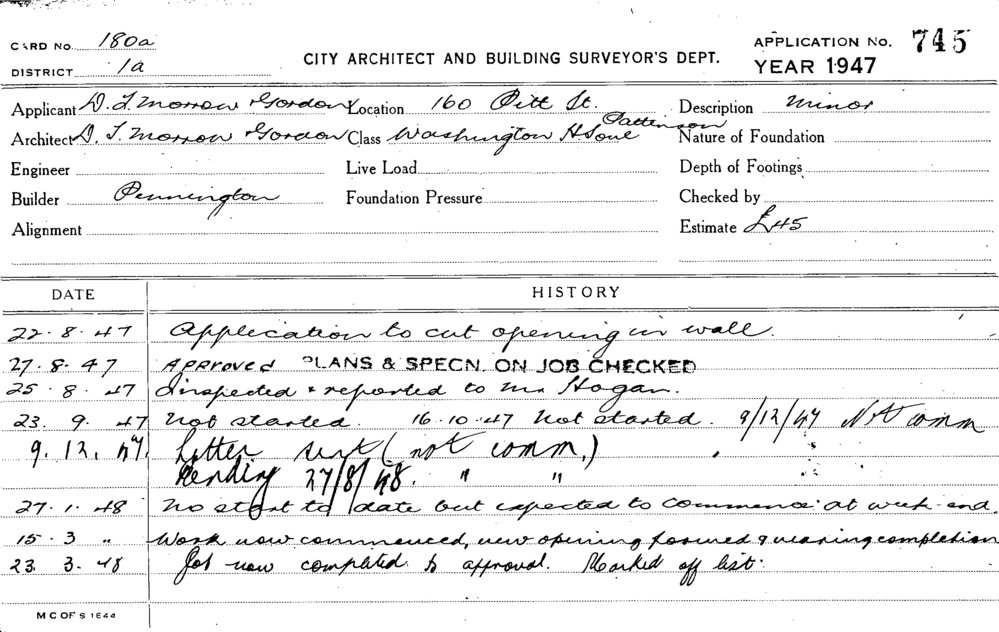 CARD No. 180a
DISTRICT 1a
CITY ARCHITECT AND BUILDING SURVEYOR'S DEPT.
APPLICATION No. 745
YEAR 1947
Applicant D. T. Morrow & Gordon Location 160 Pitt St. Description Minor
Architect D. T. Morrow & Gordon Class Washington H Soul Pattinson Nature of Foundation
Engineer Live Load Depth of Footings
Builder Pennington Foundation Pressure Checked by
Alignment Estimate £45
DATE HISTORY
22.8.47 Application to cut opening in wall.
27.8.47 Approved PLANS & SPECN. ON JOB CHECKED
25.8.47 Inspected & reported to Mr Hogan.
23.9.47 Not started. 16.10.47 Not started. 9/12/47 Not comm
9.12.47. Letter sent (not comm.)
Pending 27/8/48. " "
27.1.48 No start to date but expected to commence at week-end.
15.3 " Work now commenced, new opening formed & nearing completion
23 3.48 Job now completed to approval. Marked off list.
M C OF S 1E44